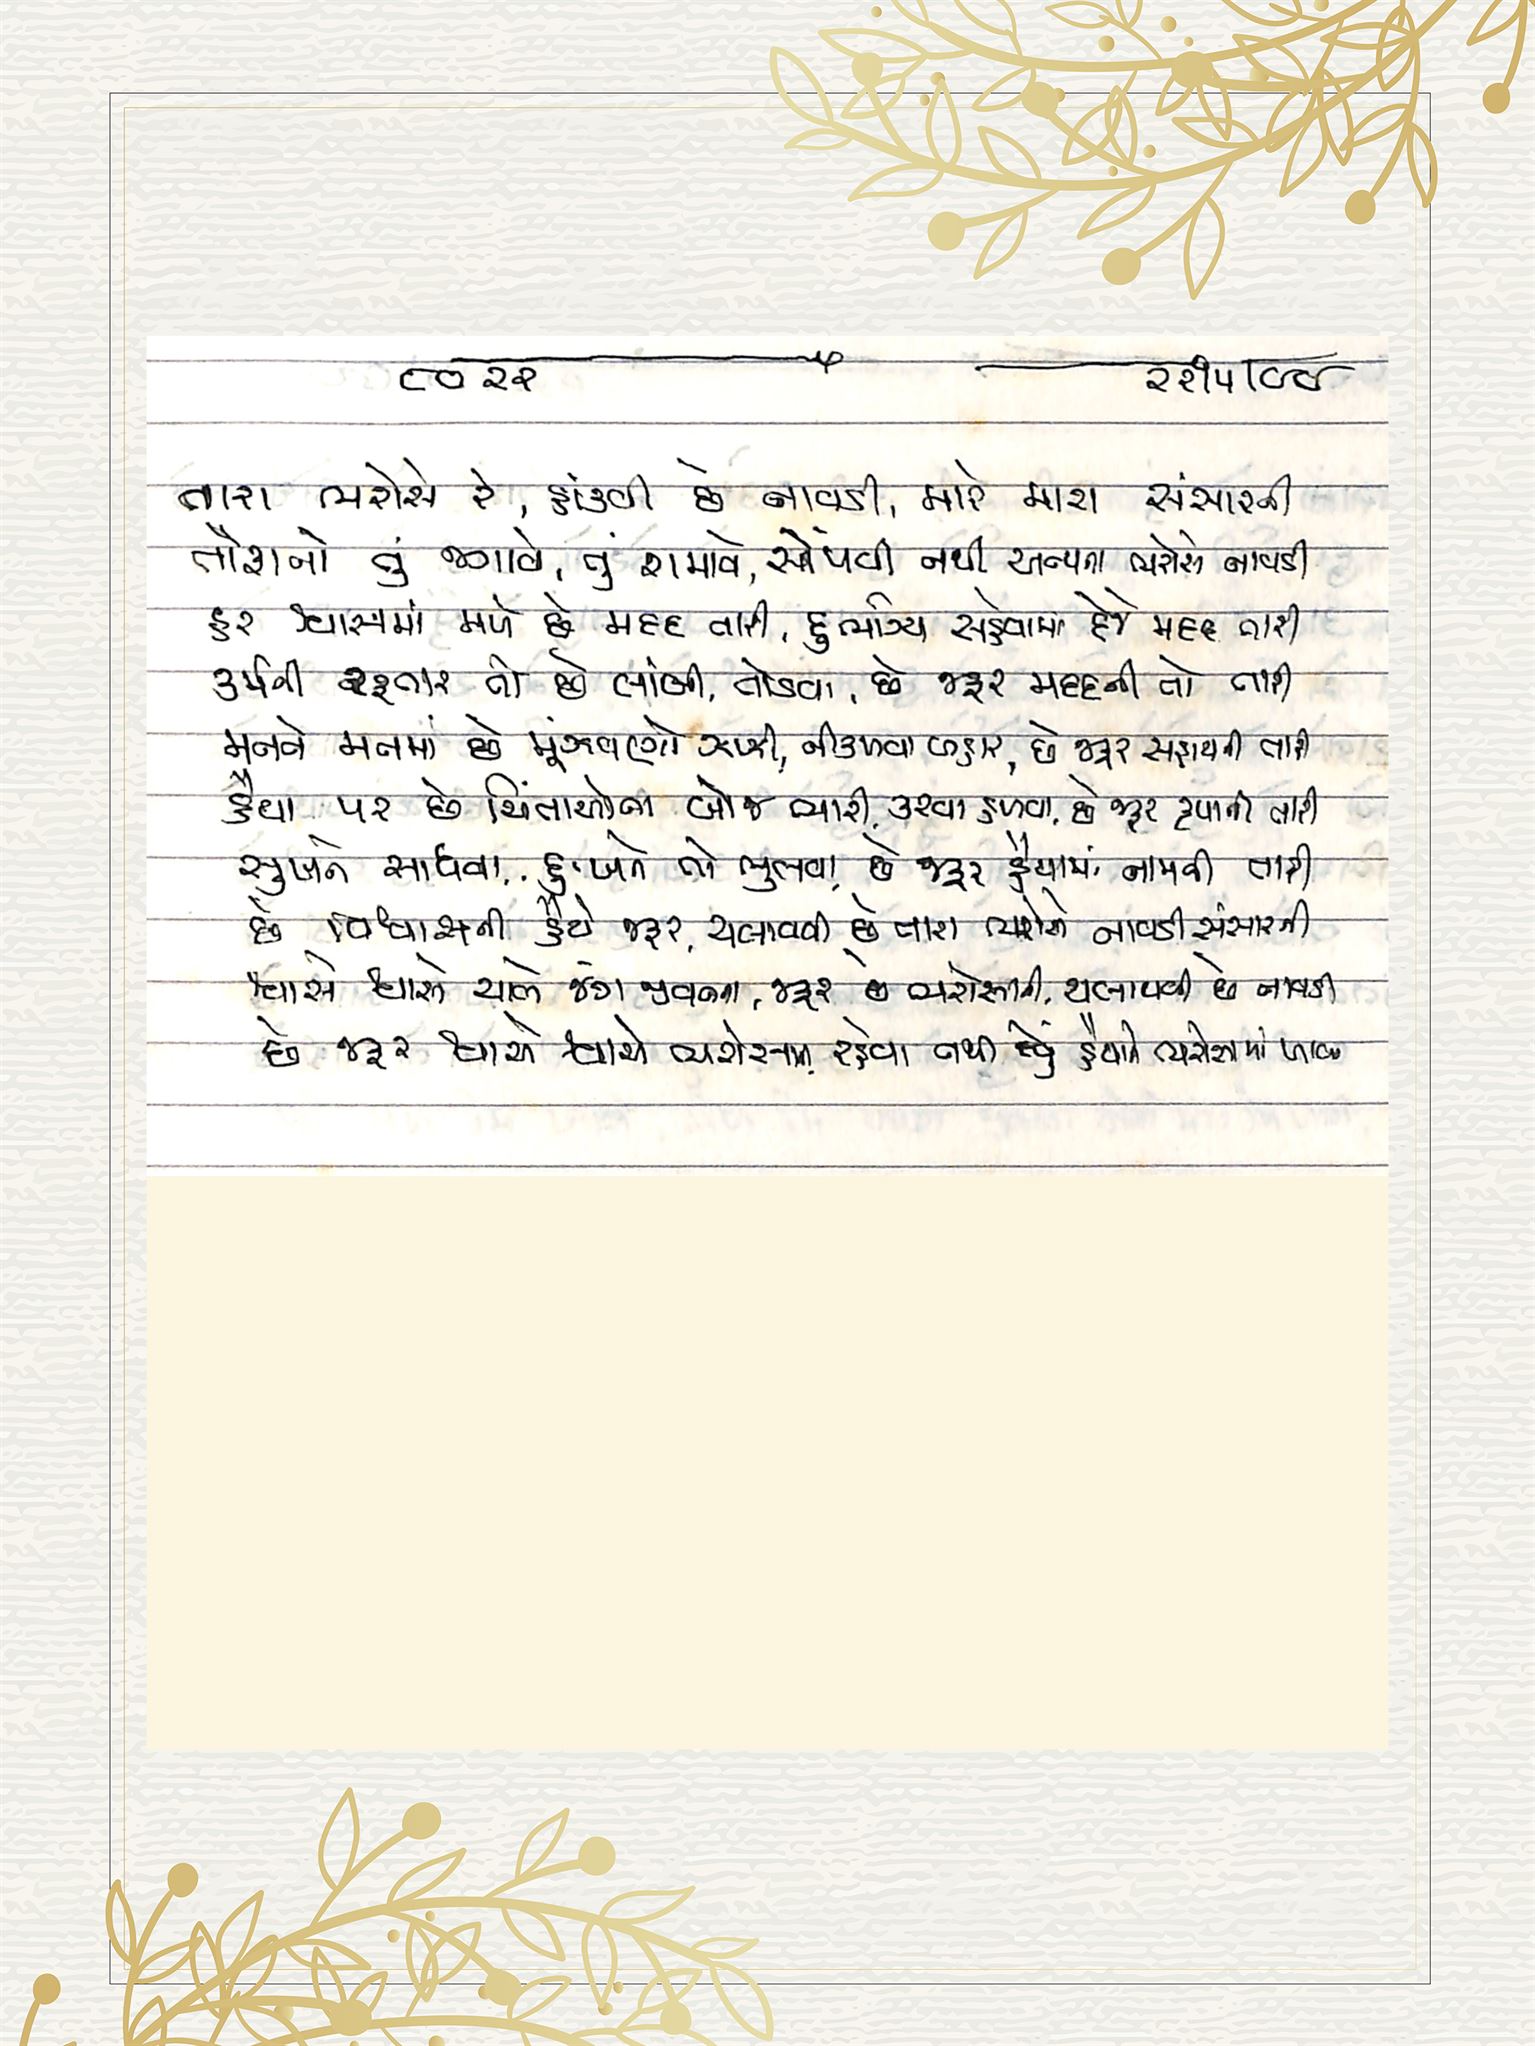 ૮૦૨૨ ૨૨।૫।૯૯
તારા ભરોસે રે, હાંકવી છે નાવડી, મારે મારા સંસારની
તોફાનો તું જગાવે, તું શમાવે, સોંપવી નથી અન્યના ભરોસે નાવડી
હર શ્વાસમાં મળે છે મદદ તારી, દુર્ભાગ્ય સહેવામાં દેજે મદદ તારી
કર્મની રફતાર તો છે લાંબી, તોડવા, છે જરૂર મદદની તો તારી
મનને મનમાં છે મૂંઝવણો ઝાઝી, નીકળવા બહાર, છે જરૂર સહાયની તારી
હૈયા પર છે ચિંતાઓનો બોજ ભારી, કરવા હળવા, છે જરૂર કૃપાની તારી
સુખને સાધવા, દુઃખને તો ભુલવા, છે જરૂર હૈયામાં નામની તારી
છે વિશ્વાસની હૈયે જરૂર, ચલાવવી છે તારા ભરોસે નાવડી સંસારની
શ્વાસે શ્વાસે ચાલે જંગ જીવનના, જરૂર છે ભરોસાની, ચલાવવી છે નાવડી
છે જરૂર શ્વાસે શ્વાસે ભરોસાના, રહેવા નથી દેવું હૈયાને ભરોસામાં